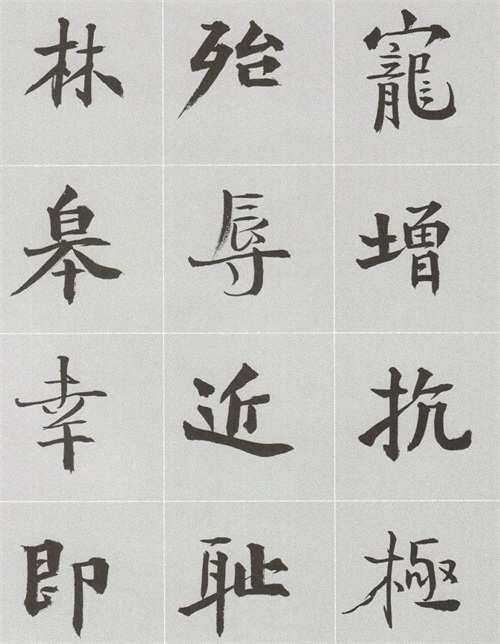 寵增抗極
殆辱近耻
林皋幸即